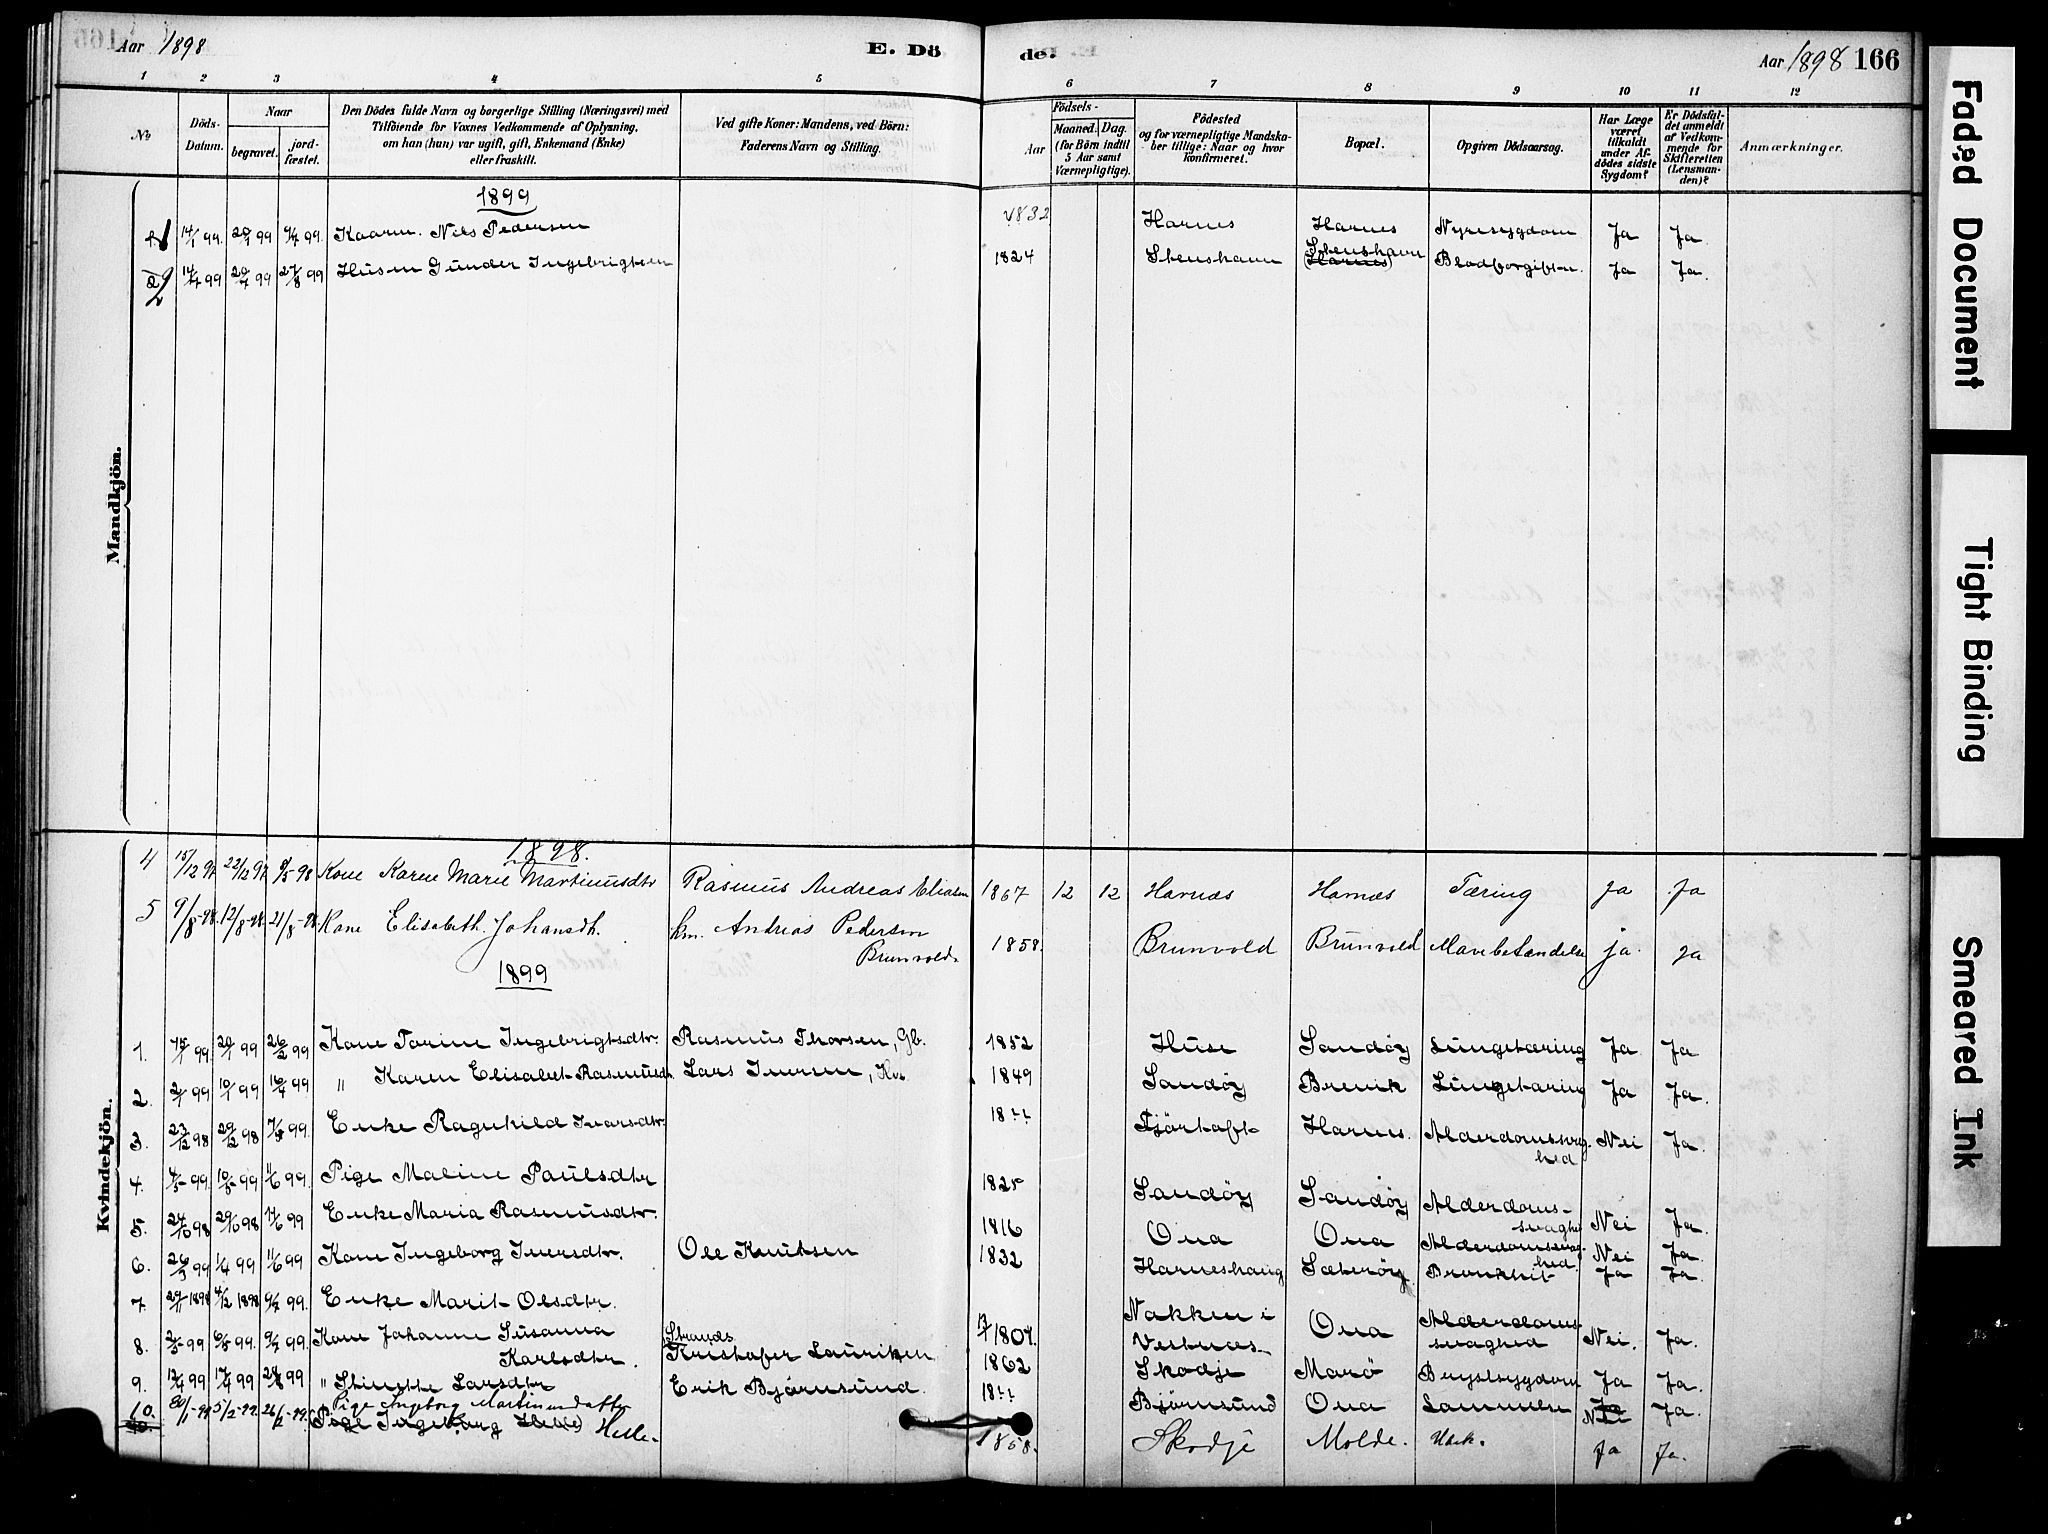 Aar 1898
E. Dö
de.
Aar 1898 166
1 2 3 4 5 6 7 8 9 10 11 12
No
Döds-Datum.
Naar
begravet.
jord-fæstet.
Den Dödes fulde Navn og borgerlige Stilling (Næringsvei) med
Tilföiende for Voxnes Vedkommende af Oplysning,
om han (hun) var ugift, gift, Enkemand (Enke)
eller fraskilt.
Ved gifte Koner: Mandens, ved Börn:
Faderens Navn og Stilling.
Födsels-
Aar
Maaned. Dag.
(for Börn indtil
5 Aar samt
Værnepligtige).
Födested
og for værnepligtige Mandska-
ber tillige: Naar og hvor
konfirmeret.
Bopæl.
Opgiven Dödsaarsag.
Har Læge
været
tilkaldt
under Af-
dödes sidste
Sygdom?
Er Dödsfal-
det anmeldt
af Vedkom-
mende for
Skifteretten
(Lensman-
den)?
Anmærkninger.
Mandkjön.
1899
1 14/1 99 20/1 99 99 Kaarm. Nils Pedersen 1832 Harnes Harnes Nyresygdom Ja Ja
2 14/7 99 20/7 99 27/8 99 Husm Gunder Ingebrigtsen 1824 Stenshavn Stenshavn (Harnes) Blodforgiftn. Ja Ja.
Kvindekjön.
1898.
4 15/12 97 22/12 97 8/5 98 Kone Karen Marie Martinusdtr Rasmus Andreas Eliasen 1867 12 12 Harnæs Harnæs Tæring Ja Ja
5 9/8-98. 12/8-98. 21/8-98 Kone Elisabeth Johansdtr. km. Andreas Pedersen
Brunvold. 1858. Brunvold Brunvold Mavebetændelse ja. ja
1899
1. 15/1 99. 20/1 99 26/2 99 Kone Torine Ingebrigtsdtr. Rasmus Thorsen, Gb. 1852 Huse Sandöy Lungetæring Ja Ja
2. 2/1 99 10/1 99 16/4 99 " Karen Elisabet Rasmusdtr. Lars Iversen, 1849 Sandöy Brevik Lungetæring Ja Ja.
3. 23/12 98 29/12 98 99. Enke Ragnhild Ivarsdtr. 18-- Tjörtoft Harnes. Alderdomssvag-
hed Nei Ja.
4. 4/5 99 10/5 99 11/6 99. Pige Maline Paulsdtr 1825 Sandöy Sandöy Alderdoms-
svaghed Nei Ja.
5. 24/10 98 29/10 98 11/6 99 Enke Maria Rasmusdtr. 1816 Ona Ona Alderdomssvag-
hed. Nei Ja.
6. 26/3 99 1/4 99 11/6 99 Kone Ingeborg Iversdtr. Ole Knutsen 1832 Harneshaug Sæteröy Bronkhit Ja Ja.
7. 29/11 1898 4/12 1898 9/7 99. Enke Marit Olsdtr. 1807. Nakken i
Vestnes Ona Alderdoms-
svaghed Nei. Ja.
8. 2/5 99 6/5 99. 9/7 99. Kone Johanne Susanna
Karlsdtr. Strands.
Kristofer Lauritsen 1862 Skodje Marö Brystsygdom Ja Ja.
9. 12/4 99 17/4 99 99 " Stinette Larsdtr Erik Björnsund. 18-- Björnsund Ona Lammelse Nei Ja.
10. 30/1-99. 5/2-99. 26/2-99. Pige Ingeborg Martinusdatter
Pige Ingeborg Helle) Helle. 1858. Skodje Molde. Ubek. Ja Ja.
Faded Document
Tight Binding
Smeared Ink